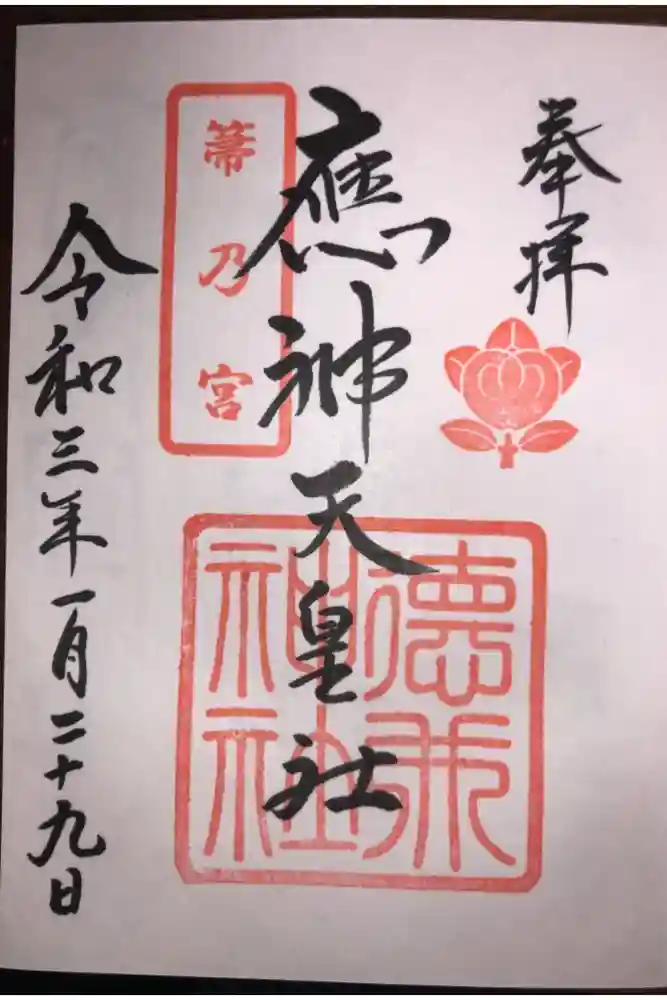 奉拝
應神天皇社
箒乃宮
德永神社
令和三年一月二十九日